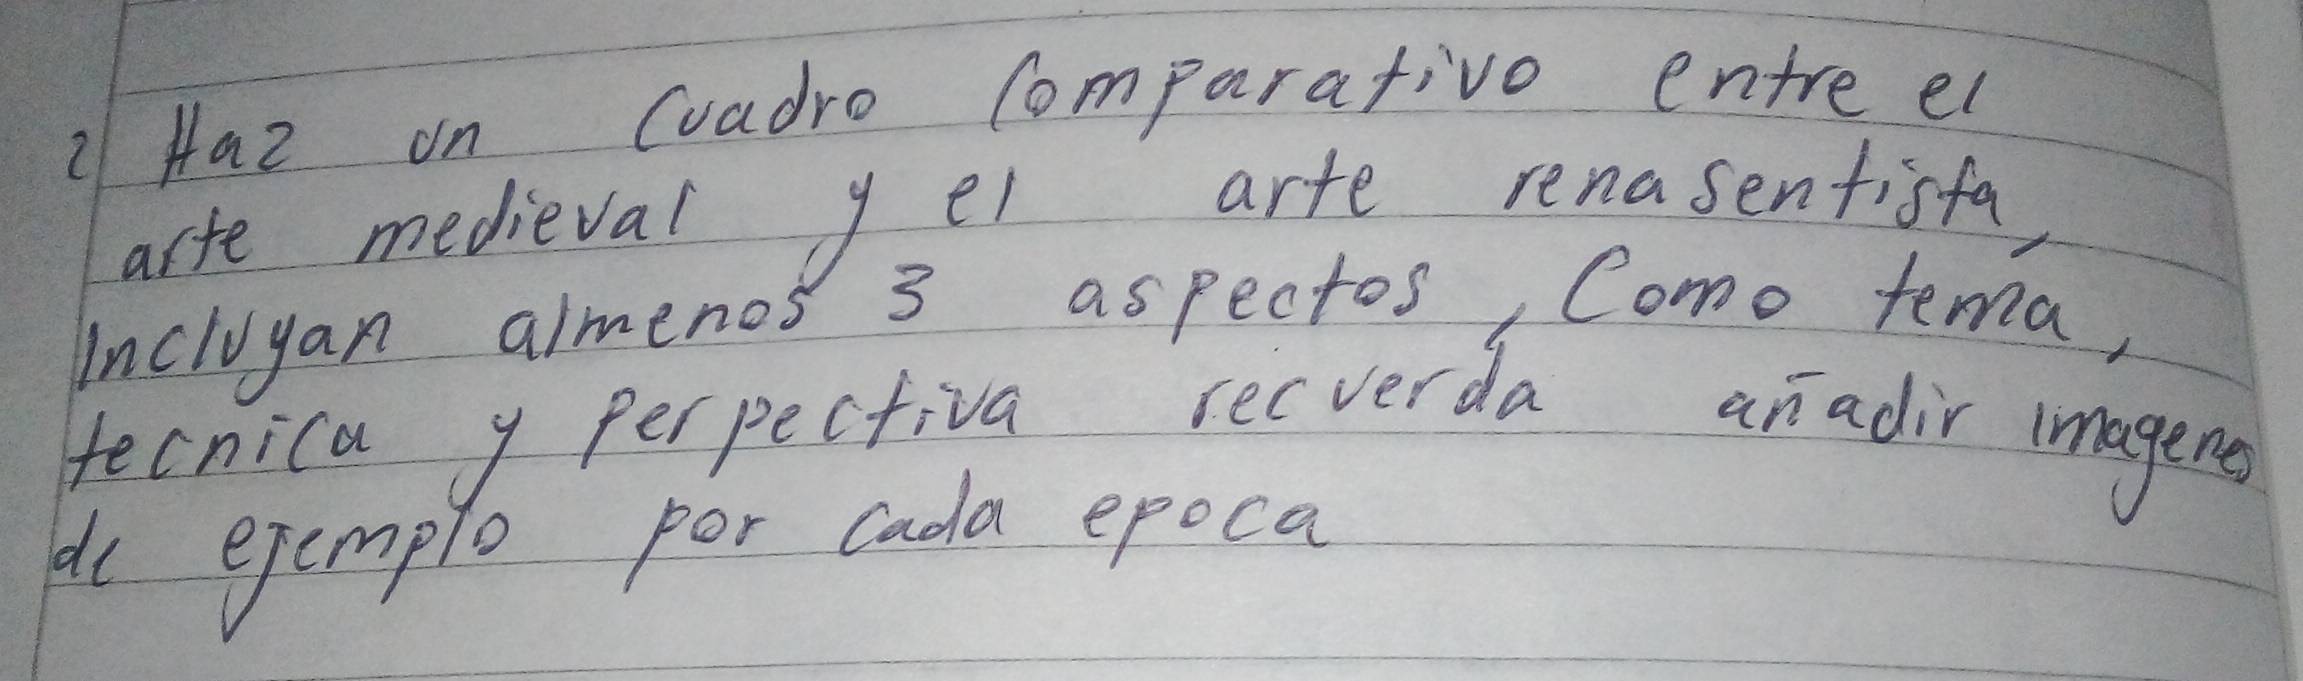 2 Haz un cuadro comparativo entre el
arte medieval y el arte renasentista,
incluyan almenos 3 aspectos, como tema,
tecnica y perpectiva recuerda añadir imagenes
de ejemplo por cada epoca